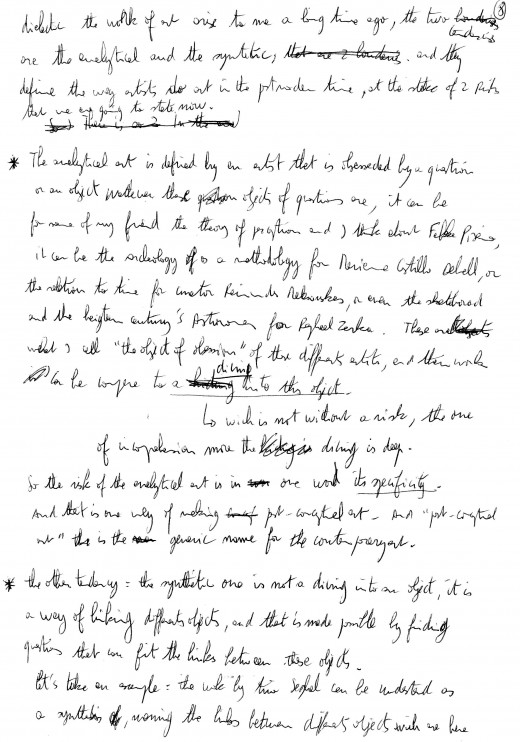 8
dialectic the world of art arise to me a long time ago, the two tendencies
are the analytical and the synthetic, and they
define the way artists do art in the postmodern time, at the stake of 2 risks
that we are going to state now.
* The analytical art is defined by an artist that is obsesseded by a question
or an object objects of questions are, it can be
for some of my friend the theory of perception and I think about
it can be the archeology as a methodology for Mariana Castillo Deball, or
the relation to time for curator Raimundas or even the skateboard
and the century's for Raphael Zarka. These are
what I call "the object of obsession" of these different artists, and their works
can be compare to a diving into this object.
wich is not without a risk, the one
of incomprehension more the diving is deep.
So the risk of the analytical art is in one word its specificity.
And that is one way of making post-conceptual art - And "post-conceptual
art" is the generic name for the contemporary art.
* the other tendency = the synthetic one is not a diving into an object, it is
a way of linking differents objects, and that is made possible by finding
questions that can fit the links between these objects.
Let's take an example = the work by Tino Seghal can be understand as
a synthesis, the links between differents objects wich are here